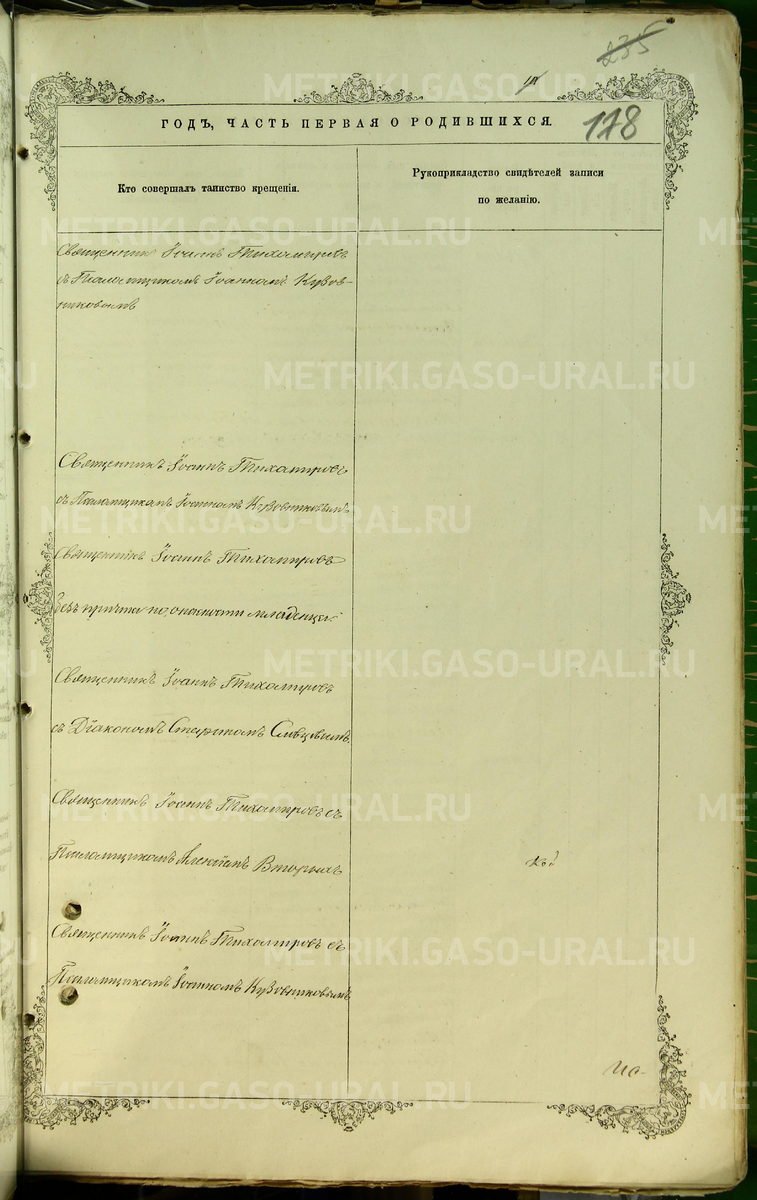 235
178
ГОДЪ, ЧАСТЬ ПЕРВАЯ О РОДИВШИХСЯ.
Кто совершалъ таинство крещенія.
Рукоприкладство свидѣтелей записи
по желанію.
Священникъ Іоаннъ Тихомировъ
съ Псаломщикомъ Іоанномъ Кузов-
никовымъ
Священникъ Іоаннъ Тихомировъ
съ Псаломщикомъ Іоанномъ Кузовниковымъ
Священникъ Іоаннъ Тихомировъ
безъ причта по опасности младенца
Священникъ Іоаннъ Тихомировъ
съ Діакономъ
Священникъ Іоаннъ Тихомировъ съ
Псаломщикомъ Вторыхъ
Священникъ Іоаннъ Тихомировъ съ
Псаломщикомъ Іоанномъ Кузовниковымъ
METRIKI.GASO-URAL.RU